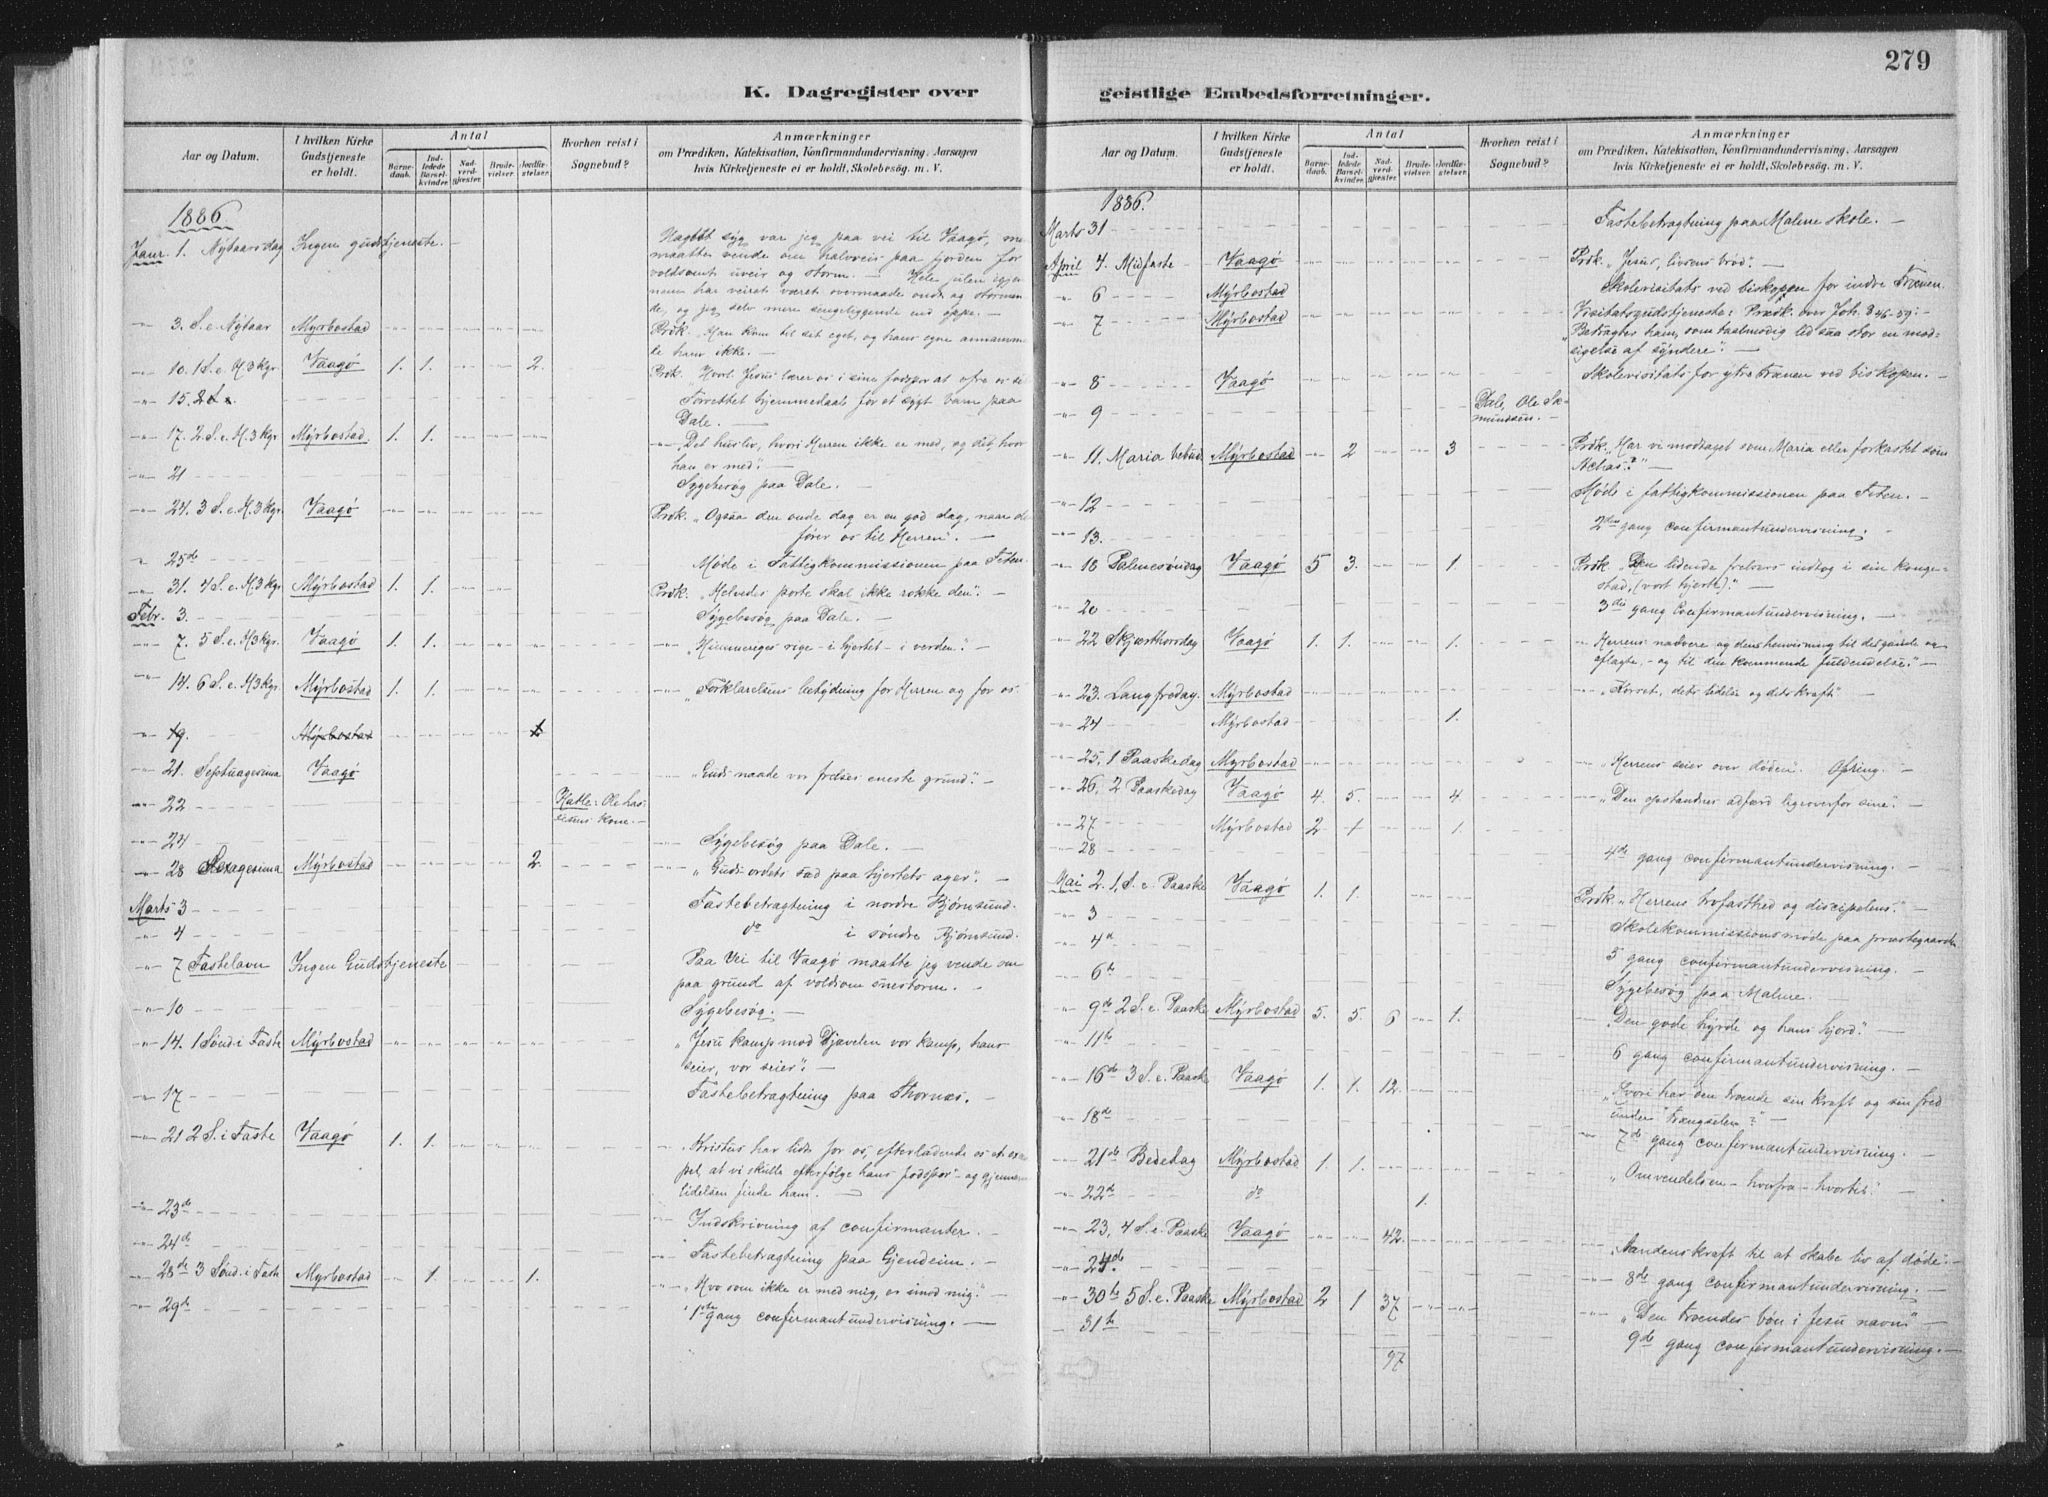 279
K. Dagregister over
geistlige Embedsforretninger.
Aar og Datum. I hvilken Kirke Gudstjeneste er holdt. Antal Barnedaab. Indledede Barselkvinder. Nadverdgjæster. Brudevielser. Jordfæstelser. Hvorhen reist i Sognebud? Anmærkninger
om Prædiken, Katekisation, Konfirmandundervisning, Aarsagen
hvis Kirketjeneste ei er holdt, Skolebesøg. m. V.
1886.
Janr. 1. Nÿtaarsdag Ingen gudstjeneste. Noget syg var jeg paa vei til Vaagø,
maatte vende om halvveis paa fjorden for
voldsomt uveir og storm. — Hele ulen
har veiret været overmaade ondt og
og jeg selv mere sengeliggende end oppe. —
3. S. e. Nÿtaar Mÿrbostad Prdk. „Han kom til sit eget, og hans egne
ham ikke. —
10. 1 S. e. H3kgr. Vaagø 1. 1. 2. Prdk. Jesus lærer os i sine fodspor at ofre os
15. Forrettet hjemmedaab for et sygt barn paa
Dale. —
17. 2 S. e. H.3kgr. Mÿrbostad. 1. 1. „Det husliv, hvori Herren ikke er med, og det, hvor
han er med". —
21 Sygebesøg paa Dale. —
24. 3 S. e. H.3kgr. Vaagø Prdk. „Ogsaa den onde dag er en god dag, naar
fører os til Herren". —
25de Møde i Fattigkommissionen paa Feten.
31. 4 S. e. H.3kgr. Mÿrbostad 1. 1. Prdk. „Helvedes porte skal ikke rokke den". —
Febr. 3. Sÿgebesøg paa Dale. —
7. 5 S. e. H3kgr. Vaagø 1. 1. „Himmeriges rige - i hjertet - i verden". —
14. 6 S. e. H3kgr. Mÿrbostad 1. 1. „Forklarelsens betÿdning for Herren og for os.
19. Mÿrbostad 1
21. Septuagesima Vaagø „Guds naade vor frelses eneste grund". —
22 Hatle: Ole
kone. —
24 Sÿgebesøg paa Dale. —
28 Sexagesima Mÿrbostad 2. „Guds ordets sæd paa hjertets ager". —
Marts 3 Fastebetragtning i nordre Bjørnsund.
4 do i søndre Bjørnsund.
7 Fastelavn Ingen Gudstjeneste Paa Vei til Vaagø maatte jeg vende om
paa grund af voldsom snestorm. —
10 Sÿgebesøg. —
14. 1 Sønd. i Faste Mÿrbostad „Jesu kamp mod Djævelen vor kamp, hans
seier, vor seier". —
17 Fastebetragtning paa Stornæs. —
21 2 S. i Faste Vaagø 1. 1. „Kristus har lidt for os, efterladende os et
at vi skulle efterfølge hans fodspor" - og gjennem
lidelsen finde ham. —
23de Indskrivning af confirmanter. —
24de Fastebetragtning paa Gjendeim. —
28de 3 Sønd. i Faste Mÿrbostad 1. 1. „Hvo som ikke er med mig, er imod mig". —
29de 1ste gang confirmantundervisning. —
Aar og Datum. I hvilken Kirke Gudstjeneste er holdt. Antal Barnedaab. Indledede Barselkvinder. Nadverdgjæster. Brudevielser. Jordfæstelser. Hvorhen reist i Sognebud? Anmærkninger
om Prædiken, Katekisation, Konfirmandundervisning, Aarsagen
hvis Kirketjeneste ei er holdt, Skolebesøg. m. V.
1886.
Marts 31 Fastebetragtning paa Malme skole. —
April 4. Midfaste Vaagø Prdk. „Jesus, livsens brød". —
6 Mÿrbostad Skolevisitats ved biskopen for indre Frænen.
7 Mÿrbostad Visitatsgudstjeneste: Prædk. over Joh. 8 46-59: —
„Betragter ham, som taalmodig led saa stor en mod-
sigelse af sÿndere". —
8 Vaagø Skolevisitats for ytre Frænen ved biskopen. —
9 Dale, Ole
11. Maria bebud. Mÿrbostad 2 3 Prdk. „Har vi modtaget som Maria eller forkastet som
Achas?" —
12 Møde i fattigkommissionen paa Feten. —
13. 2den gang confirmantundervisning. —
18 Palmesøndag Vaagø 5 3. 1. Prdk. „Den lidende frelsers indtog i sin konge-
stad, (vort hjerte)." —
20 3die gang Confirmantundervisning. —
22 Skjærthorsdag Vaagø 1. 1. 1. „Herrens nadvere og dens henvisning til det gamle
aflagte, - og til den kommende fuldendelse". —
23. Langfredag. Mÿrbostad „Korset, dets lidelse og dets kraft" —
24 Mÿrbostad 1.
25. 1 Paaskedag Mÿrbostad „Herrens seier over døden". Ofring. —
26, 2 Paaskedag Vaagø 4. 5. 4 „Den opstandnes adfærd ligeoverfor sine". —
27 Mÿrbostad 2 1 1.
28 4de gang confirmantundervisning. —
Mai 2. 1. S. e. Paaske Vaagø 1. 1. Prdk. „Herrens trofasthed og discipelens". —
3 Skolekommissionsmøde paa præstegaarden
4de 5 gang confirmantundervisning. —
6te Sÿgebesøg paa Malme. —
9de 2 S. e. Paaske Mÿrbostad 5. 5. 6 1. „Den gode hÿrde og hans hjord". —
11te 6 gang confirmantundervisning. —
16de 3 S. e. Paaske Vaagø 1. 1. 12. „Hvori har den troende sin kraft og sin fred
under trængselen?" —
18de 7de gang confirmantundervisning. —
21de Bededag Mÿrbostad 1. 1. „Omvendelsen - hvorfra - hvortil" —
22de do 1.
23, 4 S. e. Paaske Vaagø 42. „Aandens kraft til at skabe liv af døde". —
24de. 8de gang confirmantundervisning. —
30te 5 S. e. Paaske Mÿrbostad 2 1 37 „Den troendes bøn i Jesu navn" —
31te 9de gang confirmantundervisning. —
97